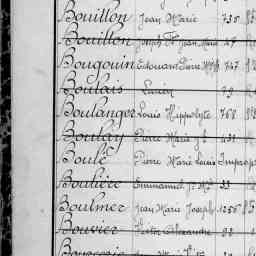 Bouillon Jean Marie 730
Bouillon Jean Marie 27
Bougouin Edouard Pierre 747
Boulais Lucien 29
Boulanger Louis Hippolyte 768
Boulay Pierre Marie 431
Boulé Pierre Marie Louis Impropre
Boulière Emmanuel 33
Boulmer Jean Marie Joseph 1266
Bouvier Victor Alexandre 92